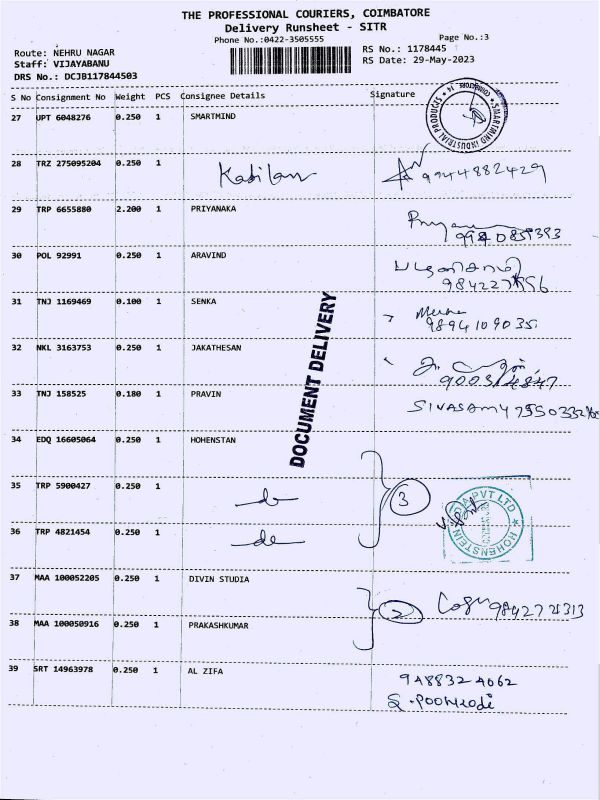 THE PROFESSIONAL COURIERS, COIMBATORE
Delivery Runsheet - SITR
Phone No.:0422-3505555
Page No.:3
Route: NEHRU NAGAR
RS No.: 1178445
Staff: VIJAYABANU
RS Date: 29-May-2023
DRS No.: DCJB117844503
S No Consignment No Weight PCS Consignee Details Signature
27 UPT 6048276 0.250 1 SMARTMIND
SMARTMIND INDUSTRIAL PRODUCTS
28 TRZ 275095204 0.250 1 Kabilan 9944882429
29 TRP 6655880 2.200 1 PRIYANAKA
30 POL 92991 0.250 1 ARAVIND
31 TNJ 1169469 0.100 1 SENKA
9894109035
32 NKL 3163753 0.250 1 JAKATHESAN
33 TNJ 158525 0.180 1 PRAVIN
SIVASAMY
DOCUMENT DELIVERY
34 EDQ 16605064 0.250 1 HOHENSTAN
35 TRP 5900427 0.250 1 do 3
36 TRP 4821454 0.250 1 do
HOHENSTEIN INDIA PVT LTD
37 MAA 100052205 0.250 1 DIVIN STUDIA
2
38 MAA 100050916 0.250 1 PRAKASHKUMAR
39 SRT 14963978 0.250 1 AL ZIFA
9488324062